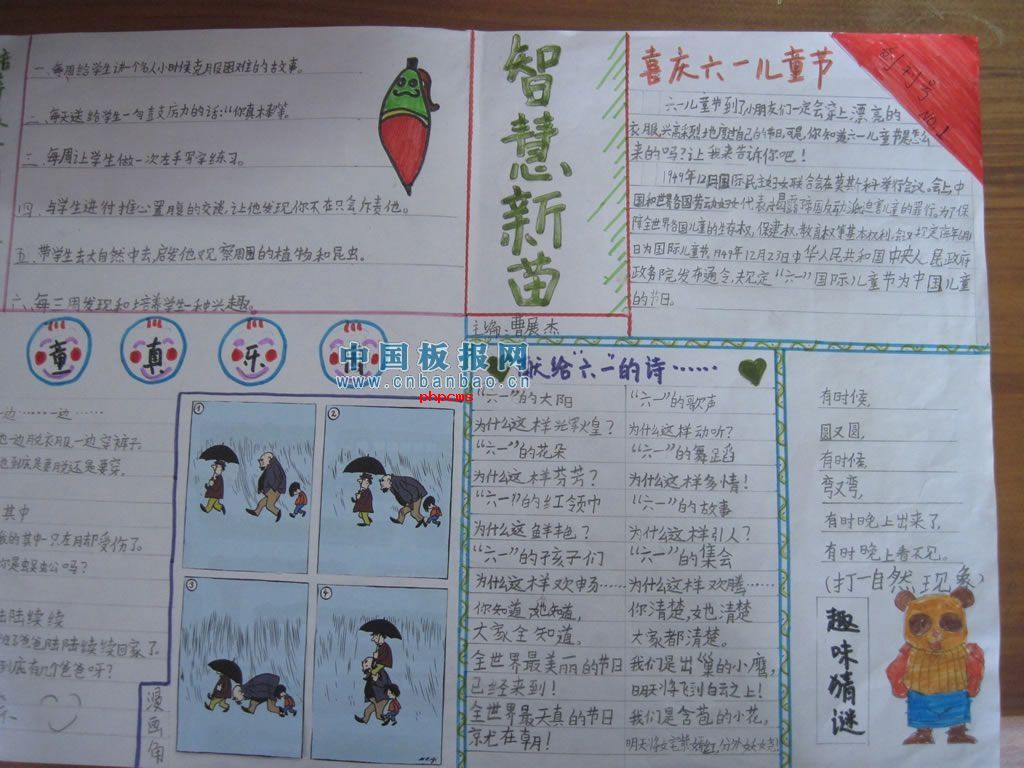 一、每周给学生讲一个名人小时候克服困难的故事。
二、每天送给学生一句支支
三、每周让学生做一次左手写字练习。
四、与学生进行推心置腹的交谈,让他发现你不在只会斥责他。
五、带学生去大自然中去,启发他观察周围的植物和昆虫。
六、每三周发现和培养学生一种兴趣。
智慧新苗
主编:曹展杰
创刊号
NO.1
喜庆六一儿童节
六一儿童节到了小朋友们一定会穿上漂亮的
衣服,兴高采烈地度过自己的节日,可是,你知道六一儿童节是怎么
来的吗?让我来告诉你吧!
1949年12月国际民主妇女联合会在莫斯科举行会议,会上,中
国和世界各国劳动妇女代表
保障全世界各国儿童的生存权,保健权,教育权等基本权利,会
日为国际儿童节,1949年12月23日中华人民共和国中央人民政府
政务院发布通令,规定“六一”国际儿童节为中国儿童
的节日。
童 真 乐
中国板报网
www.cnbanbao.cn
phpcms
一边……一边……
他一边脱衣服一边穿裤子。
他到底是要脱还是要穿。
其中
的其中一只左月却受伤了。
你是蜈蚣吗?
陆陆续续
爸爸陆陆续续回家了。
到底有几个爸爸呀?
漫画角
①
②
③
④
献给“六一”的诗……
“六一”的太阳
为什么这样光辉火皇?
“六一”的花朵
为什么这样芬芳?
“六一”的红领巾
为什么这鲜艳?
“六一”的孩子们
为什么这样欢
你知道她知道,
大家全知道。
全世界最美丽的节日
已经来到!
全世界最天真的节日
就在今朝!
“六一”的歌声
为什么这样动听?
“六一”的舞蹈
为什么这样多情!
“六一”的故事
为什么这样引人?
“六一”的集会
为什么这样欢腾……
你清楚,她也清楚
大家都清楚。
我们是出巢的小鹰,
明天将飞到白云之上!
我们是含苞的小花,
有时候,
圆又圆,
有时候,
弯又弯,
有时晚上出来了,
有时晚上看不见。
(打一自然现象)
趣味猜谜